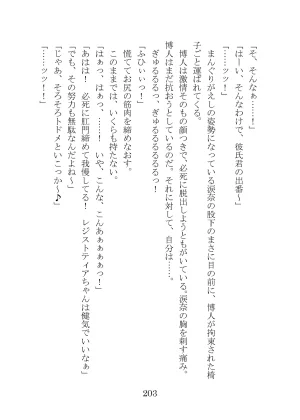 「そ、そんなぁ……！」
「はーい、そんなわけで、彼氏君の出番～」
「……ッッ！！」
まんぐりがえしの姿勢になっている涙奈の股下のまさに目の前に、博人が拘束された椅
子ごと運ばれてくる。
博人は激情そのもの顔つきで、必死に脱出しようともがいていた。涙奈の胸を刺す痛み。
博人はまだ抗おうとしているのだ。それに対して、自分は……。
ぎゅるるるっ、ぎゅるるるるるるっ！
「ふひぃぃっ！」
慌ててお尻の筋肉を締めなおす。
このままでは、いくらも持たない。
「はぁっ、はぁっ……！　いや、こんな、こんあぁぁぁぁっ！
「あはは！　必死に肛門締めて我慢してる！　レジストティアちゃんは健気でいいなぁ」
「でも、その努力も無駄なんだよね～」
「じゃあ、そろそろトドメといこっか～♪」
「……ッッ！！」
203